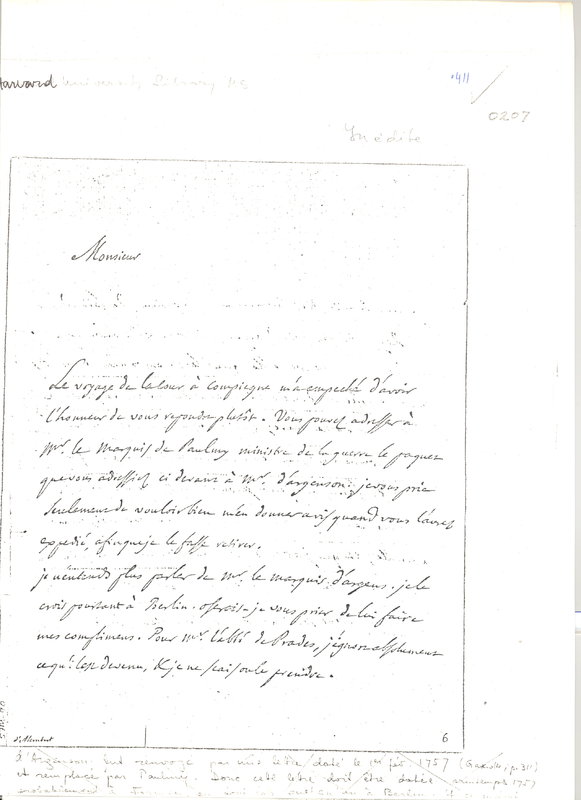 Harvard University Library MS
411
0207
Inédite
Monsieur
Le voyage de la cour à compiegne m'a empeché d'avoir
l'honneur de vous repondre plutôt. Vous pouvez adresser à
Mr. le Marquis de Paulmy ministre de la guerre le paquet
que vous adressiez ci devant à Mr. d'argenson; je vous prie
seulement de vouloir bien m'en donner avis quand vous l'aurez
expedié, afin que je le fasse retirer.
je n'entends plus parler de Mr. le marquis d'argens. je le
crois pourtant à Berlin. oserois-je vous prier de lui faire
mes complimens. Pour Mr. l'abbé de Prades, j'ignore absolument
ce qu'il est devenu, & je ne sai où le prendre.
d'Alembert
6
D'Argenson fut renvoyé par une lettre daté le 1er fév. 1757 (Gaxotte, p. 311)
et remplacé par Paulmy. Donc cette lettre doit être datée printemps 1757
probablement à